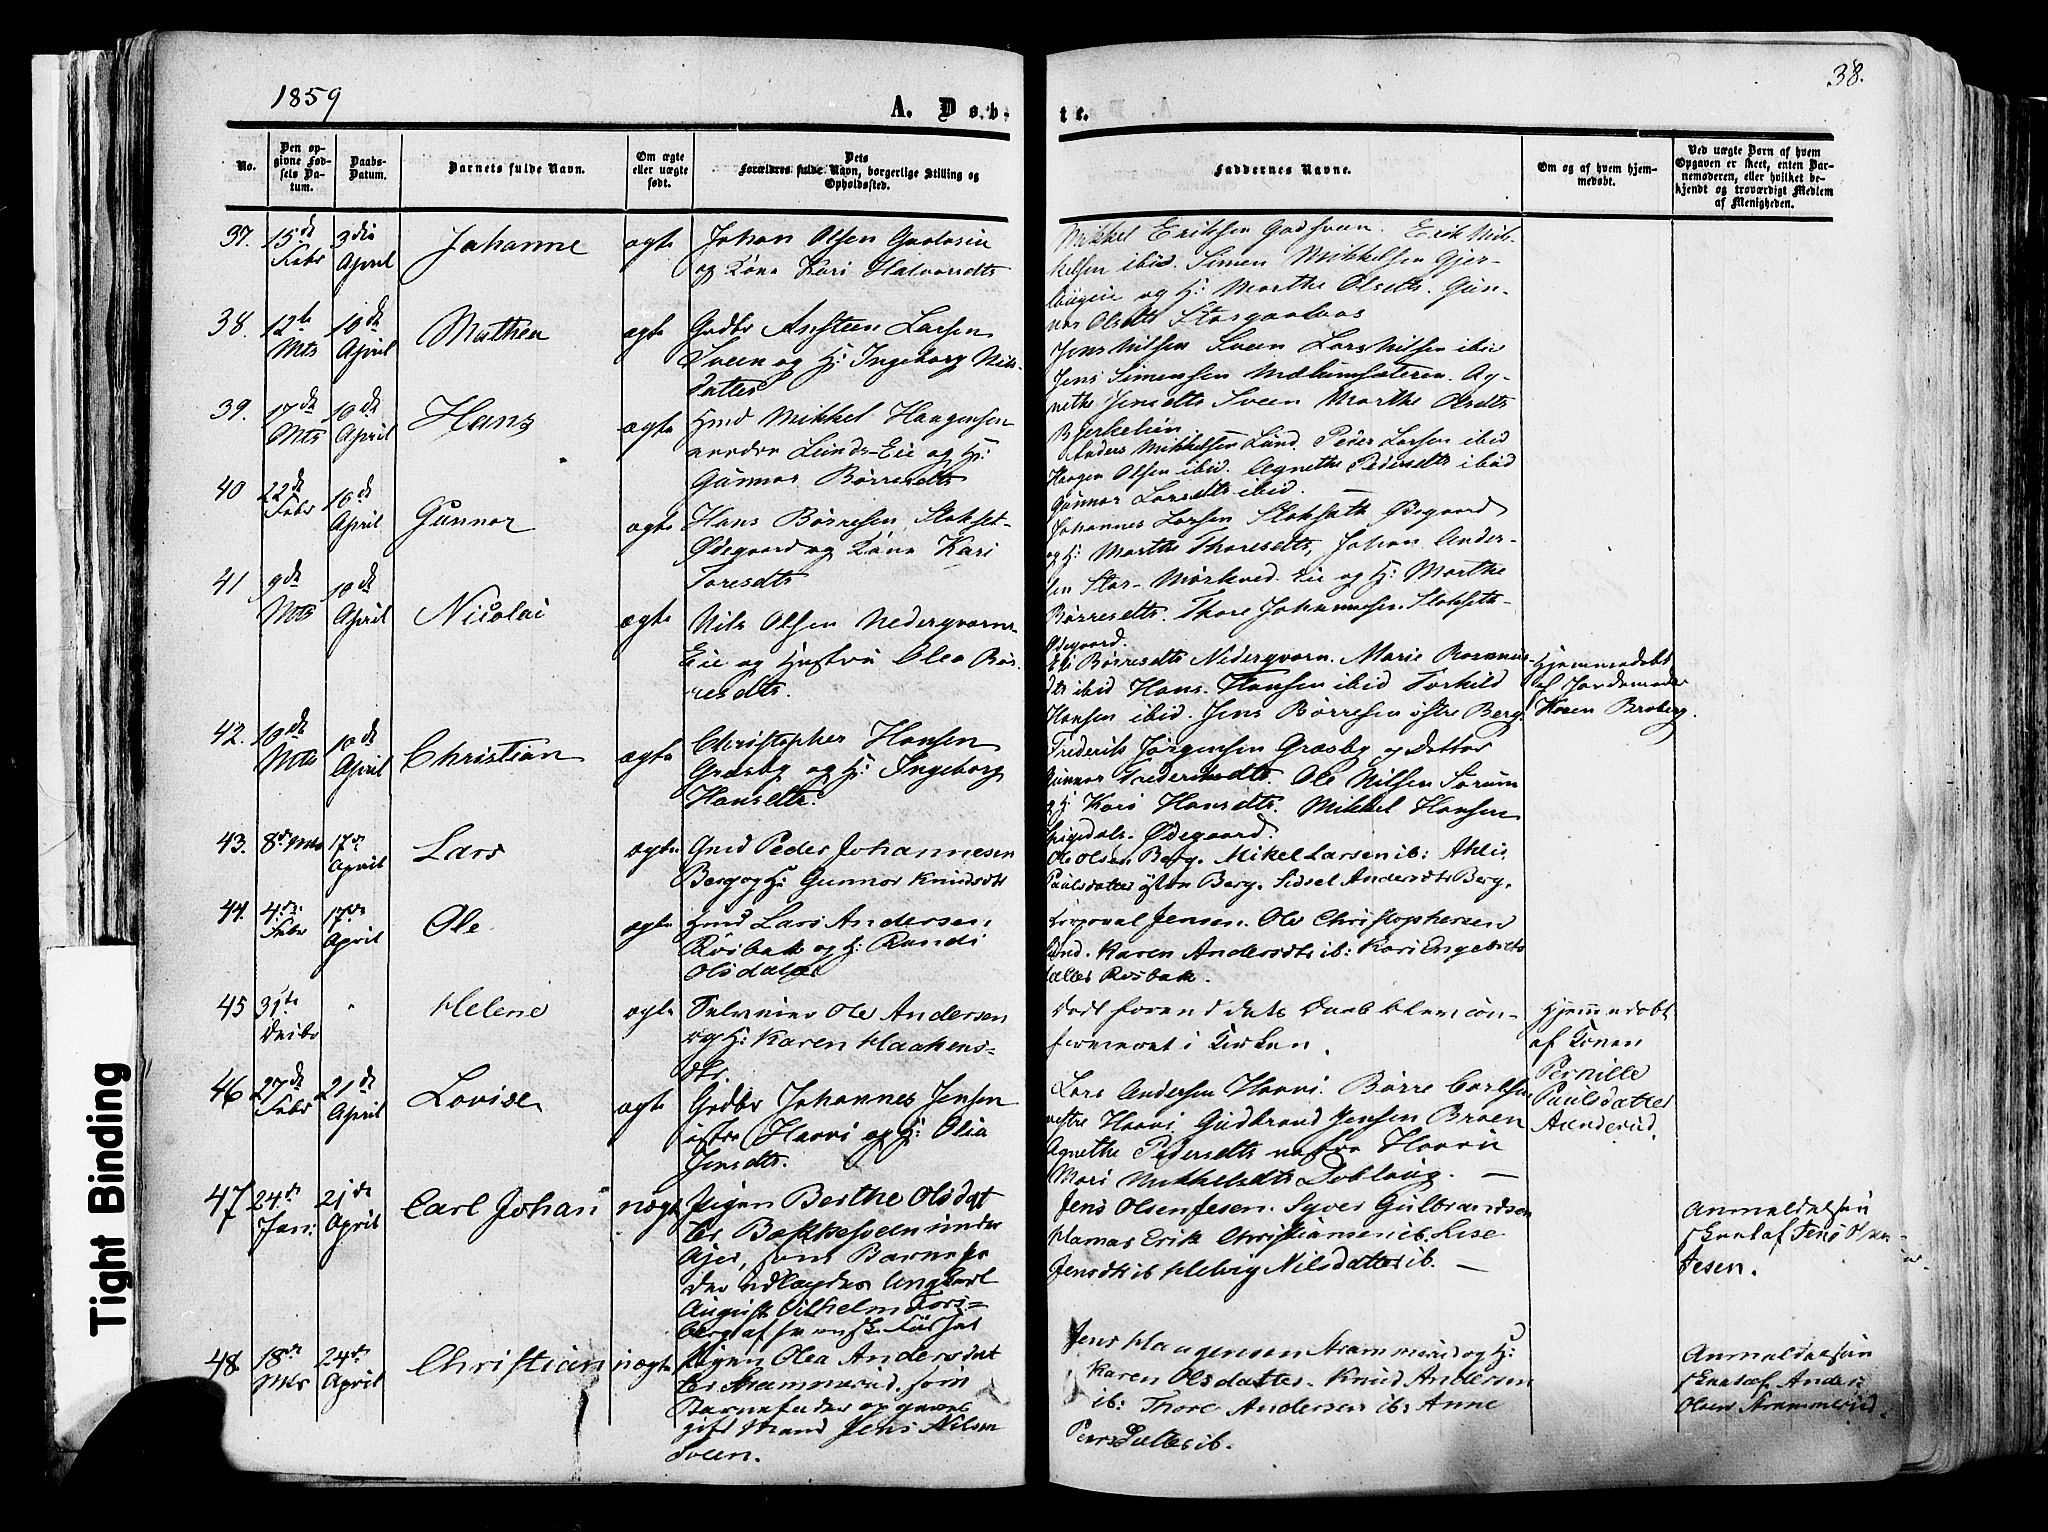 1859
A. Døb-
te.
38.
No.
Den op-
givne Fød-
sels Da-
tum.
Daabs-
Datum.
Barnets fulde Navn.
Om ægte
eller uægte
født.
Dets
Forældres fulde Navn, borgerlige Stilling og
Opholdssted.
Faddernes Navne.
Om og af hvem hjem-
medøbt.
Ved uægte Børn af hvem
Opgaven er skeet, enten Bar-
nemoderen, eller hvilket be-
kjendt og troværdigt Medlem
af Menigheden.
37. 15de Febr 3die April Johanne ægte Johan Olsen
og Kone Kari Halvorsdtr
Mikkel Eriksen Godsvan. Erik Mik-
kelsen ibid. Simen Mikkelsen Gjer-
og H: Marthe Olsdtr. Gun-
nor Olsdtr
38. 12te Mts 10de April Mathea ægte Gbdbr Ansteen Larsen
Sveen og H: Ingeborg Nils-
datter
Jens Nilsen Sveen Lars Nilsen ibid
Jens Simensen Mælumsæteren. Ag-
nethe Jensdtr Sveen Marthe Olsdtr
Bjerkelien
39. 17de Mts 10de April Hans ægte Hmd Mikkel Haagensen
Lunds-Eie og H:
Gunnor Børresdtr
Anders Mikkelsen Lund. Peder Larsen ibid
Haagen Olsen ibid. Agnethe Pedersdtr ibid
Gunnor Larsdtr ibid. —
40 22de Febr 10de April Gunnor ægte Hans Børresen Slokset-
Ødegaard og Kone Kari
Toresdtr
Johannes Larsen Sloksæth Ødegaard
og H: Marthe Thoresdtr, Johan Ander-
sen Stor-Mørkved Eie og H: Marthe
Børresdtr. Thore Johannesen Slokseth-
Ødegaard.
41 9de Mts 10de April Nicolai ægte Nils Olsen Nederqvorns-
Eie og Hustru Olea Bør-
resdtr.
Eli Børresdtr Nederqvorn. Marie Rasmus-
dtr ibid Hans Hansen ibid Torkild
Hansen ibid. Jens Børresen østre Berg
Hjemmedøbt
af Jordemoder
Karen Broberg.
42. 10de Mts 10de April Christian ægte Christopher Hansen
Græsby og H: Ingeborg
Hansdtr.
Frederik Jørgensen Græsby og Datter
Gunnor Frederiksdtr. Ole Nilsen Sørum
og H: Kari Hansdtr. Mikkel Hansen
Ødegaard.
43. 8de Mts 17de April Lars ægte Gmd Peder Johannesen
Berg og H: Gunnor Knudsdtr
Ole Olsen Berg. Mikel Larsen ib: Ahlis
Paulsdatter østen Berg. Sidsel Andersdtr Berg.
44. 4de Febr 17de April Ole ægte Hmd Lars Andersen
Rosbak og H: Randi
Olsdatter
Korporal Jensen. Ole Christophersen
Lund. Karen Andersdtr ib: Kari Engebrets
datter Rosbak.
45 31te Decbr " Helene ægte Selveier Ole Andersen
og H: Karen Haakens-
dtr.
Død forend dets Daab blev con-
firmeret i Kirken.
Hjemmedøbt
af Konen
Pernille
Paulsdatter
Aanderud.
46 27de Febr 21de April Lovise ægte Gbdbr Johannes Jensen
østre Hovvi og H: Olia
Jensdtr.
Lars Andersen Hovvi. Børre Carlsen
vestre Hovvi, Gudbrand Jensen Braen
Agnethe Pedersdtr Hovvi
Mari Mikkelsdtr Dobloug. —
47 24de Jan: 21de April Carl Johan uægte Pigen Berthe Olsdat
ter Bækkesveen under
Ajer, som Barnefa
der udlægdes Ungkarl
August Vilhelm Fors-
berg af svensk
Jens Olsen Jesen. Syver Gulbrandsen
Hamar Erik Christiansen ib. Lise
Jensdtr ib Helvig Nilsdatter ib. —
Anmeldelsen
skeet af Jens Olsen
Jesen.
48 18de Mts 24de April Christian uægte Pigen Olea Andersdat
ter Strammerud, som
Barnefader opgaves
gift Mand Jens Nilsen
Sveen.
Jens Haagensen Strammerud og H:
Karen Olsdatter. Knud Andersen
ib: Thore Andersen ib: Anne
Peersdatter ib.
Anmeldelsen
skeet af Anders
Olsen Strammerud.
Tight Binding